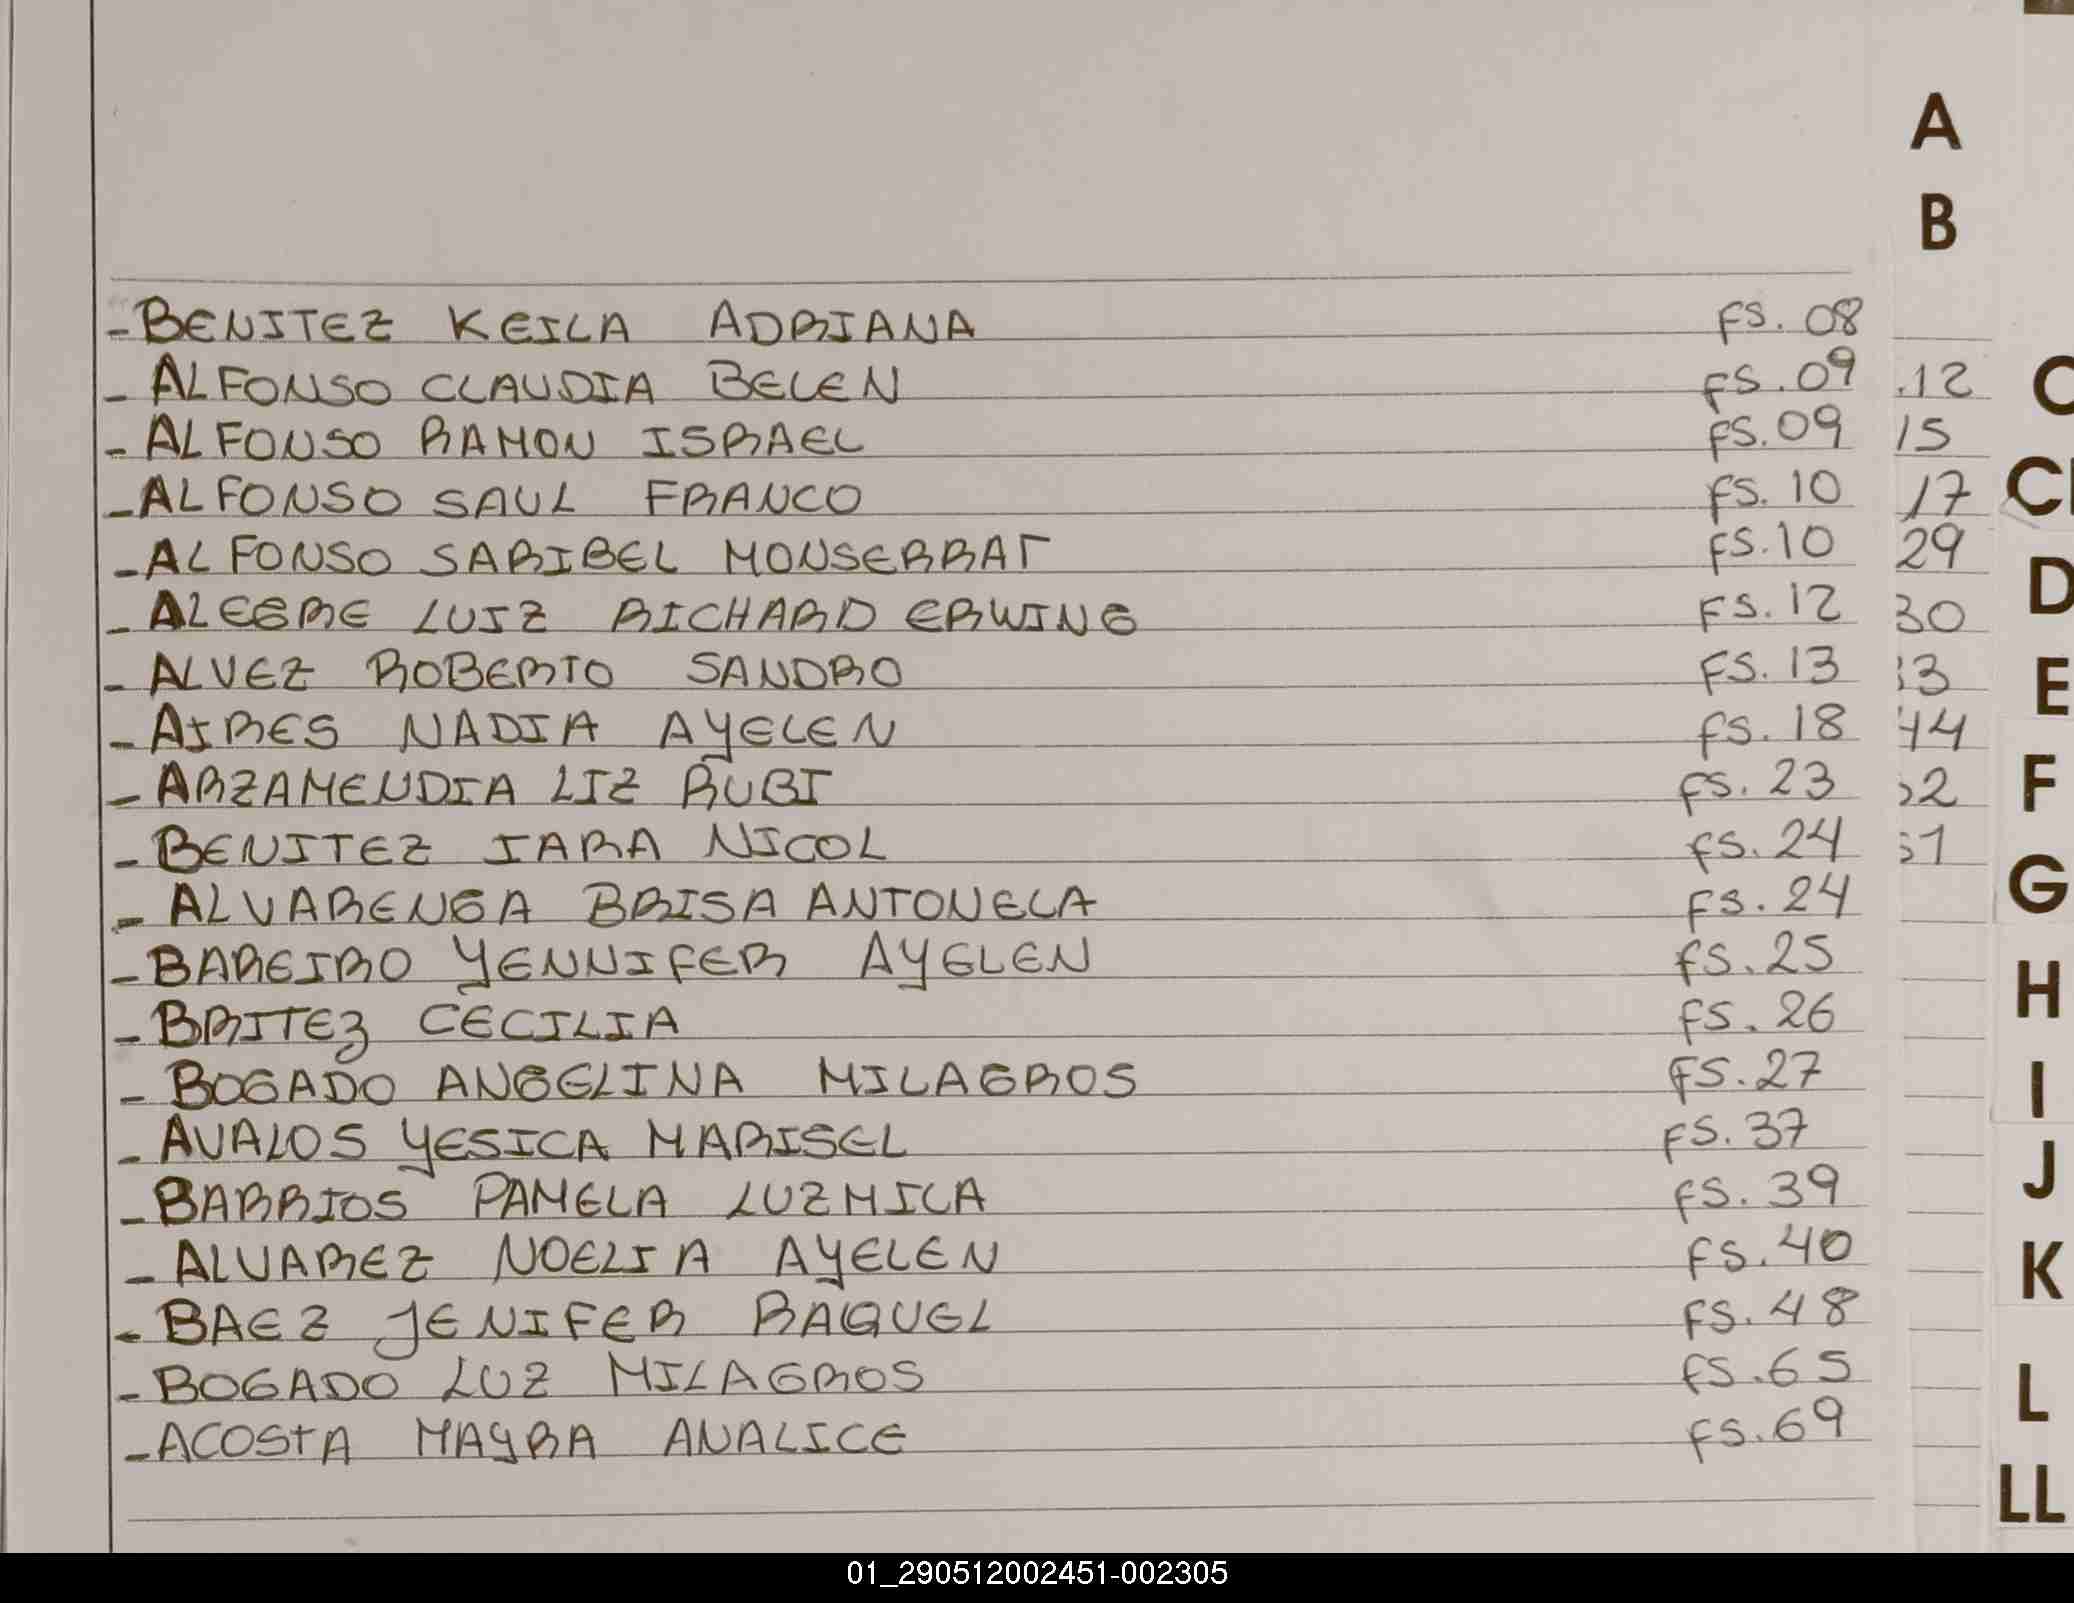 A
B
-BENITEZ KEILA ADRIANA FS. 08
- ALFONSO CLAUDIA BELEN FS. 09 .12 C
- ALFONSO RAMON ISRAEL FS. 09 15
- ALFONSO SAUL FRANCO FS. 10 17
- ALFONSO SARIBEL MONSERRAT FS. 10 29
- ALEGRE LUIZ RICHARD ERWING FS. 12 30 D
- ALVEZ ROBERTO SANDRO FS. 13 3 E
- AIRES NADIA AYELEN FS. 18 44
- ARZAMENDIA LIZ RUBI FS. 23 2 F
- BENITEZ IARA NICOL FS. 24 1
- ALVARENGA BRISA ANTONELA FS. 24 G
- BAREIRO YENNIFER AYELEN FS. 25
- BRITEZ CECILIA FS. 26 H
- BOGADO ANGELINA MILAGROS FS. 27 I
- AVALOS YESICA MARISEL FS. 37 J
- BARRIOS PAMELA LUZMILA FS. 39
- ALVAREZ NOELIA AYELEN FS. 40 K
- BAEZ JENIFER RAQUEL FS. 48
- BOGADO LUZ MILAGROS FS. 65 L
- ACOSTA MAYRA ANALICE FS. 69
LL
01_290512002451-002305